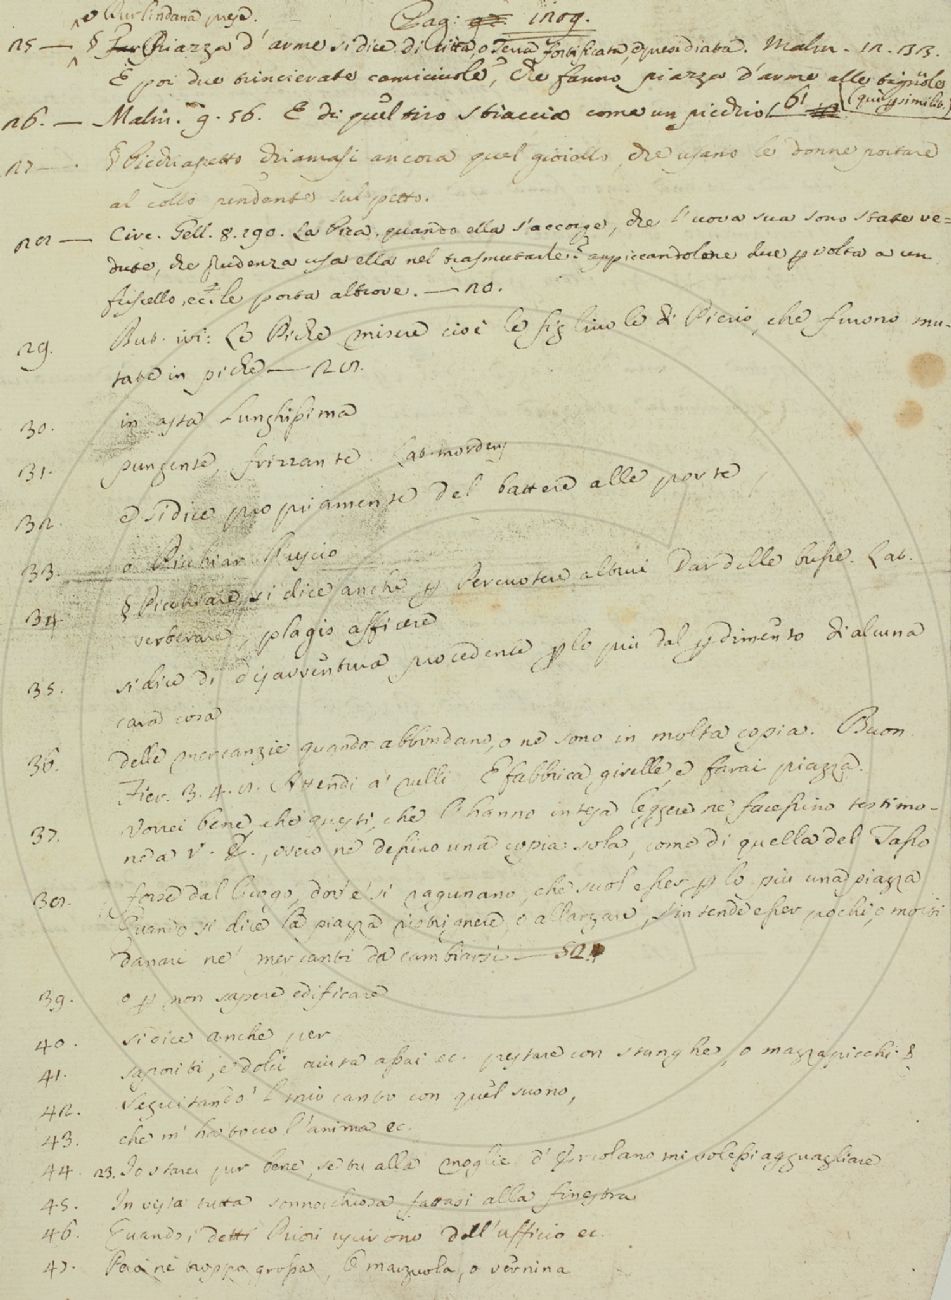 e Burlindana prese. Pag: 1209.
25 — § Piazza d'arme si dice di Città, o Terra fortificata, e presidiata. Malm. 12. 33.
E poi due trincierate camiciuole, Che fanno piazza d'arme alle tignuole
26. — Malm. 9. 56. E di quel tiro stiaccia come un picchio 61
27 — § Picchiapetto chiamasi ancora quel gioiello, che usano le donne portare
al collo pendente sul petto.
28 — Circ. Gell. 8. 190. La Pica, quando ella s'accorge, che l'uova sua sono state ve-
dute, che prudenza usa ella nel trasmutarle? appiccandolone due p volta a un
fuscello, ec. le porta altrove. — 20.
29. But. ivi: Le Piche misere cioè le figliuole di Pierio, che furono mu-
tate in piche — 28.
30. in asta lunghissima
31. pungente, frizzante. Lat. mordens
32. e si dice propriamente del battere alle porte
33. o Picchiar l'uscio
34 § Picchiare, si dice anche p Percuotere altrui Dar delle busse. Lat.
verberare, plagis afficere
35. si dice di disavventura procedente p lo più dal pdimento di alcuna
cara cosa
36. delle mercanzie quando abbondano, o ne sono in molta copia. Buon.
Fier. 3. 4. 2. Attendi a' pulli E fabbrica girelle, e farai piazza.
37. Vorrei bene, che questi, che l'hanno intesa leggere ne facessino testimo-
nea v. S., overo ne dessino una copia sola, come di quella del Tasso
38. forse dal luogo, dov'e' si ragunano, che suol esser p lo più una piazza
Quando si dice la piazza ristrignere, o allargare, s'intende esser pochi, o molti
danari ne' mercanti da cambiarsi — 52
39. o p non sapere edificare
40. si dice anche per
41. saporiti, e dolci aiuta assai ec. pestare con stanghe, o mazzapicchi §
42. Seguitando 'l mio canto con quel suono,
43. che m'ha tocco l'anima ec.
44. 23. Io starei pur bene, se tu alla moglie d'Ercolano mi volessi agguagliare
45. In vista tutta sonnocchiosa fattasi alla finestra
46. Quando i detti Priori uscirono dell'ufficio ec.
47. Pasa nè troppa grossa, E marzuola, o vernina